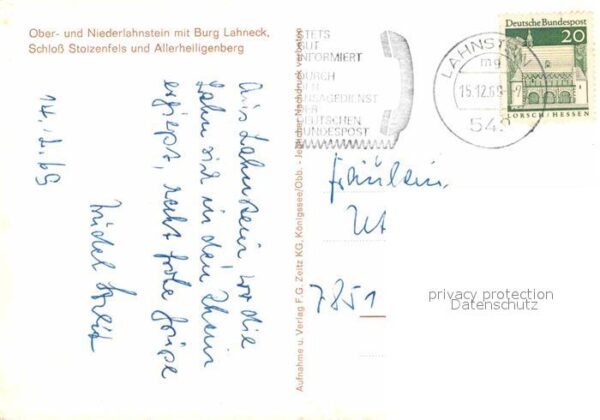 Ober- und Niederlahnstein mit Burg Lahneck,
Schloß Stolzenfels und Allerheiligenberg
14.12.69
Aus Lahnstein, wo die
Lahn sich in den Rhein
ergiept, recht frohe Grüße
Aufnahme u. Verlag F.G. Zeitz KG, Königssee/Obb. - Jeglicher Nachdruck verboten
STETS
GUT
INFORMIERT
DURCH
DEN
ANSAGEDIENST
DER
DEUTSCHEN
BUNDESPOST
LAHNSTEIN
mg
15.12.69
542
Deutsche Bundespost
20
LORSCH/HESSEN
Fräulein
Ut
7851
privacy protection
Datenschutz